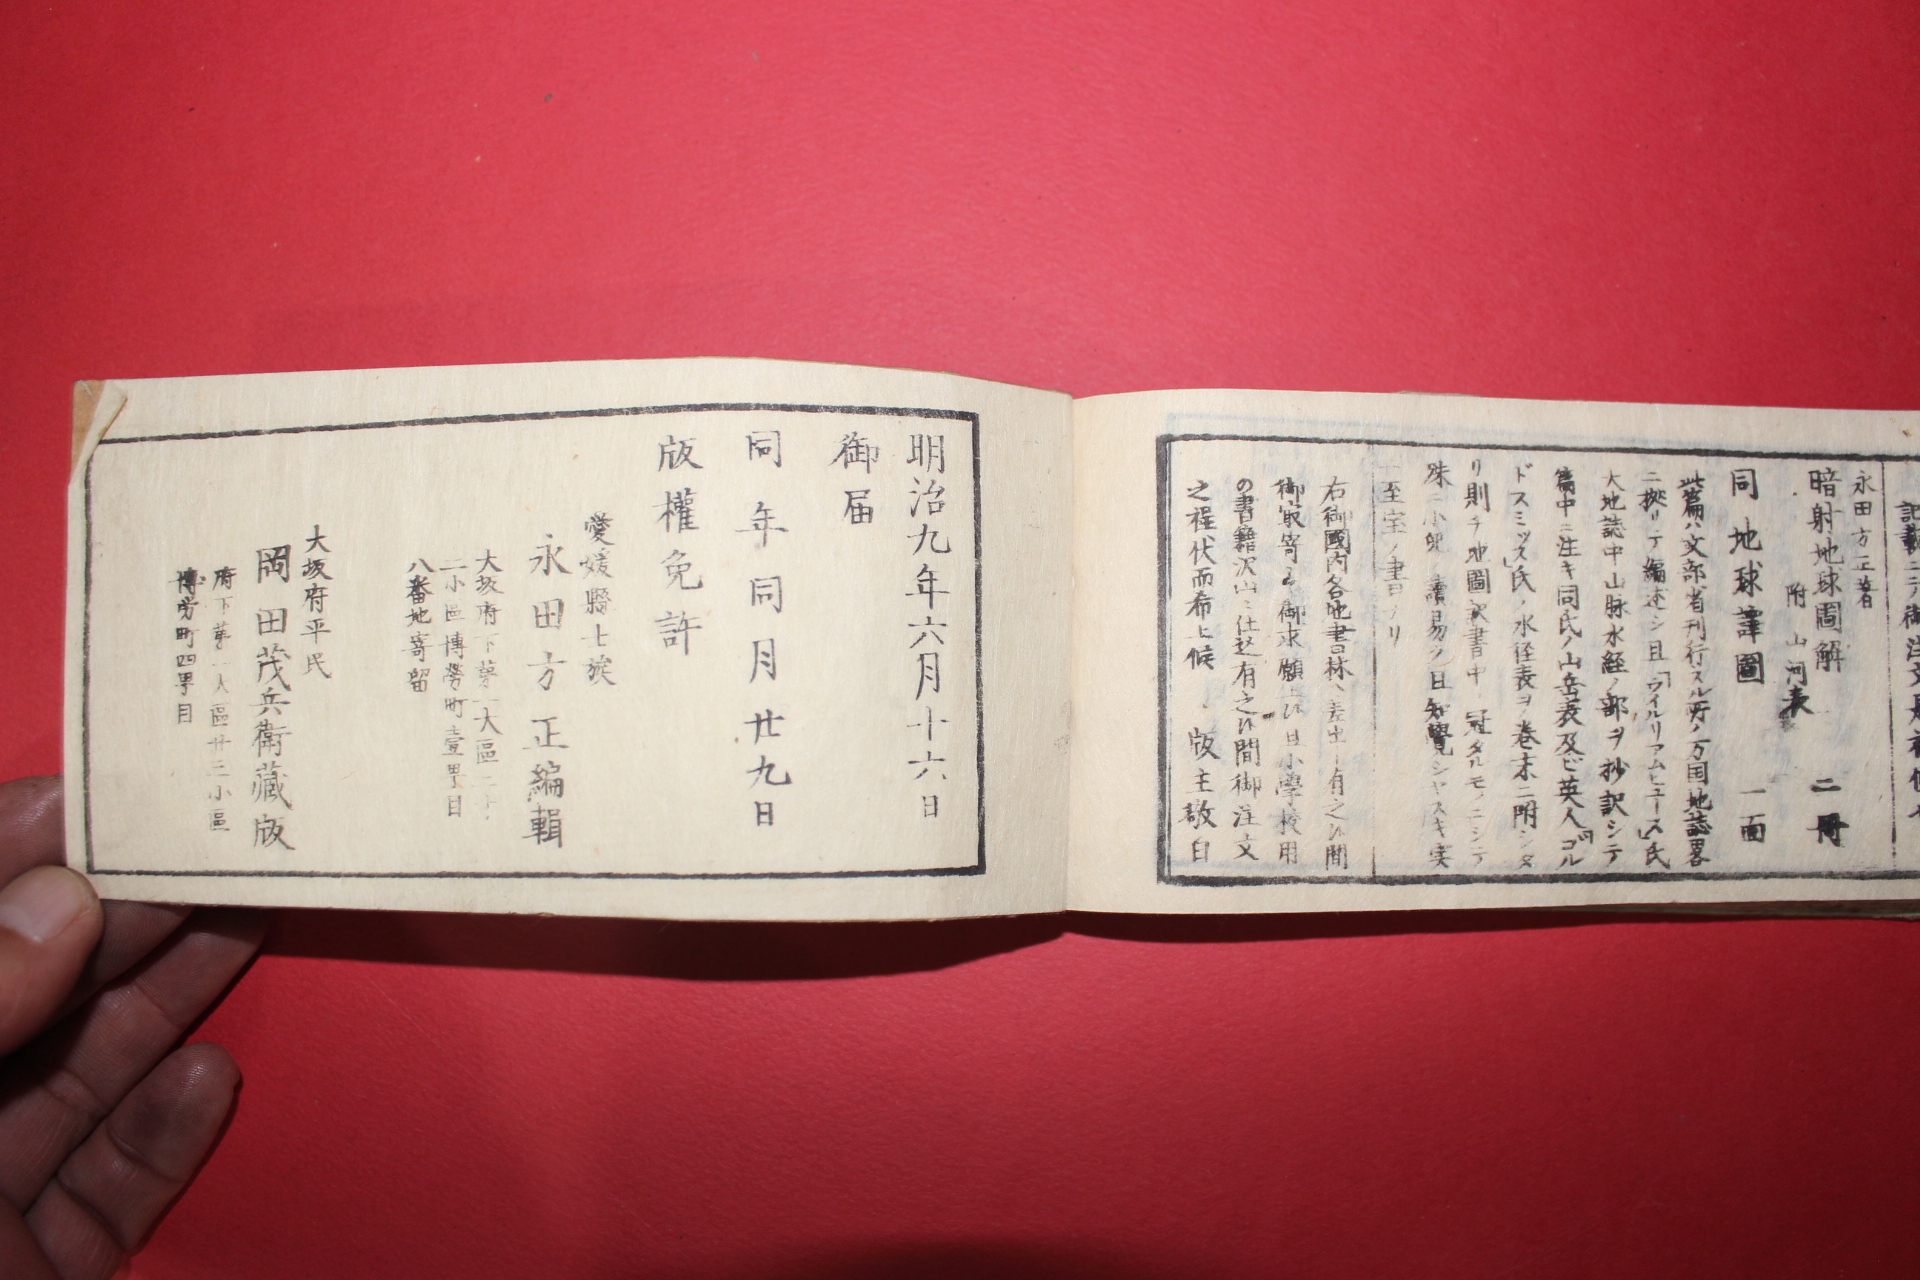 永田方正著
暗射地球圖解 二冊
附 山河表
同 地球譯圖 一面
此篇ハ文部省刊行スル所ノ万国地誌畧
ニ拠リテ編述シ且「ウイルリアムヒユース」氏
大地誌中山脉水経ノ部ヲ抄訳シテ
篇中ニ注キ同氏ノ山岳表及ビ英人「ゴル
ドスミツス」氏ノ水径表ヲ巻末ニ附シタ
リ則チ地圖訳書中ノ冠タルモノニシテ
殊ニ小児ノ讀易ク且知覺シヤスキ実
ニ至宝ノ書ナリ
右御國内各地書林ヘ差出シ有之候間
御取寄る御求願上候且小學校用
の書籍沢山ニ仕込有之候間御注文
之程伏而希上候 版主敬白
明治九年六月十六日
御届
同年同月廿九日
版權免許
愛媛縣士族
永田方正編輯
大坂府下第一大區二十
二小區博勞町壹丁目
八番地寄留
大坂府平民
岡田茂兵衛藏版
府下第一大區廿三小區
博勞町四丁目